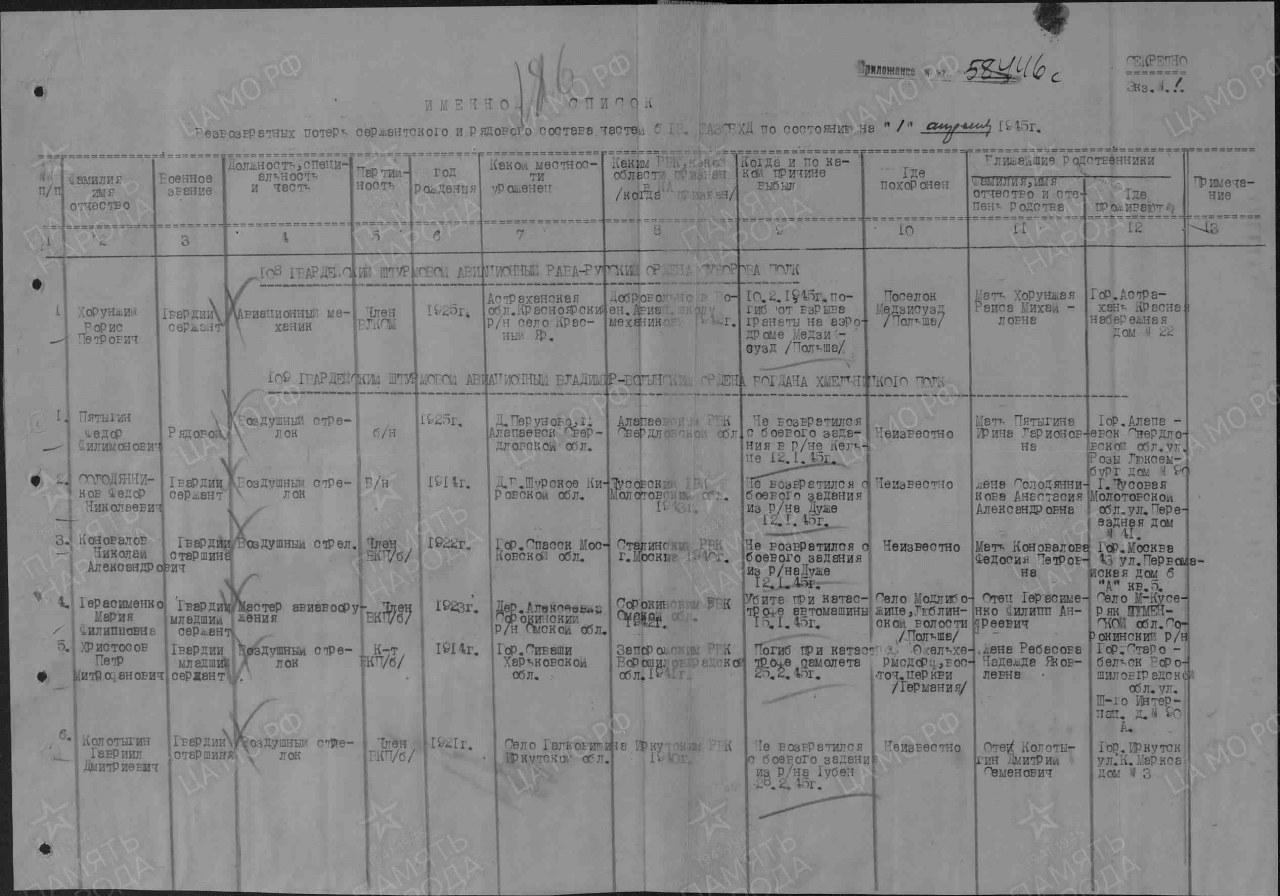 186
Приложение № 58446с
СЕКРЕТНО
Экз.№ 1.
ИМЕННО СПИСОК
безвозвратных потерь сержантского и рядового состава частей 6 ГВ. по состоянию на "1" апреля 1945г.
№ п/п
Фамилия имя отчество
Военное звание
Должность, специальность и часть
Партийность
год рождения
Какой местности уроженец
Каким РВК, какой области призван в КА /когда призван/
Когда и по какой причине выбыл
Где похоронен
Ближайшие родственники
Фамилия, имя отчество и степень родства
Где проживают
Примечание
1 2 3 4 5 6 7 8 9 10 11 12 13
108 ГВАРДЕЙСКИЙ ШТУРМОВОЙ АВИАЦИОННЫЙ РАВА-РУССКИЙ ОРДЕНА СУВОРОВА ПОЛК
1
Хорунжий
Борис
Петрович
Гвардии
сержант
Авиационный ме-
ханик
Член
ВЛКСМ
1925г.
Астраханская
обл.Красноярский
р/н село Крас-
ный Яр.
Добровольно в Во-
ен.Авиац.школу
механиков
10.2.1945г.по-
гиб от взрыва
гранаты на аэро-
дроме Медзи-
судз /Польша/
Поселок
Медзисудз
/Польша/
Мать Хорунжая
Раиса Михай -
ловна
Гор.Астра-
хань Красная
набережная
дом № 22
109 ГВАРДЕЙСКИЙ ШТУРМОВОЙ АВИАЦИОННЫЙ ВЛАДИМИР-ВОЛЫНСКИЙ ОРДЕНА БОГДАНА ХМЕЛЬНИЦКОГО ПОЛК
1.
Пятыгин
Федор
Филимонович
Рядовой
Воздушный стре-
лок
б/н
1925г.
Д.Перуново,г.
Алапаевск Свер-
дловской обл.
Алапаевский РВК
Свердловской обл.
Не возвратился
с боевого зада-
ния в р/не Кель-
це 12.1.45г.
Неизвестно
Мать Пятыгина
Ирина Ларионов-
на
Гор.Алапа -
евск Свердло-
вской обл.ул.
Розы Люксем-
бург дом № 90
2.
СОЛОДЯННИ-
ков Федор
Николаевич
Гвардии
сержант
Воздушный стре-
лок
Б/н
1914г.
Д.Г.Шурское Ки-
ровской обл.
Чусовский РВК
Молотовской обл.
1943г.
Не возвратился с
боевого задания
из р/на Душе
12.1.45г.
Неизвестно
Жена Солодянни-
кова Анастасия
Александровна
Г.Чусовая
Молотовской
обл.ул.Пере-
ездная дом
№ 41.
3.
Коновалов
Николай
Александрович
Гвардии
старшина
Воздушный стрел.
Член
ВКП/б/
1922г.
Гор.Спасск Мос-
ковской обл.
Сталинский РВК
г.Москвы 1940г.
Не возвратился с
боевого задания
из р/наДуше
12.1.45г.
Неизвестно
Мать Коновалова
Федосия Петров-
на
Гор.Москва
43 ул.Первома-
йская дом 6
"А" кв.5.
4.
Герасименко
Мария
Филипповна
Гвардии
младший
сержант
Мастер авиавоору-
жения
Член
ВКП/б/
1923г.
Дер.Алексеевка
Сорокинский
р/н Омской обл.
Сорокинский РВК
Омской обл.
1942г.
Убита при катас-
трофе автомашины
15.1.45г.
Село Модлибо-
жице,Люблин-
ской волости
/Польша/
Отец Герасиме-
нко Филипп Ан-
дреевич
Село М-Кусе-
ряк ТЮМЕН-
СКОЙ обл.Со-
рокинский р/н
5.
Христосов
Петр
Митрофанович
Гвардии
младший
сержант
Воздушный стре-
лок
К-т
ВКП/б/
1914г.
Гор.Сиваши
Харьковской
обл.
Запорожский РВК
Ворошиловградской
обл.1941г.
Погиб при катаст
трофе самолета
25.2.45г.
рмсдорф,вос-
точ.церкви
/Германия/
Жена Ребасова
Надежда Яков-
левна
Гор.Старо -
бельск Воро-
шиловградской
обл.ул.
Ш-го Интер-
нац. д.№ 90
А.
6.
Колотыгин
Гавриил
Дмитриевич
Гвардии
старшина
Воздушный стре-
лок
Член
ВКП/б/
1921г.
Село Галковищина
Иркутской обл.
Иркутский РВК
1940г.
Не возвратился
с боевого задания
из р/на Губен
28.2.45г.
Неизвестно
Отец Колоты-
гин Дмитрий
Семенович
Гор.Иркутск
ул.К.Маркса
дом № 3
ЦАМО РФ
ПАМЯТЬ НАРОДА